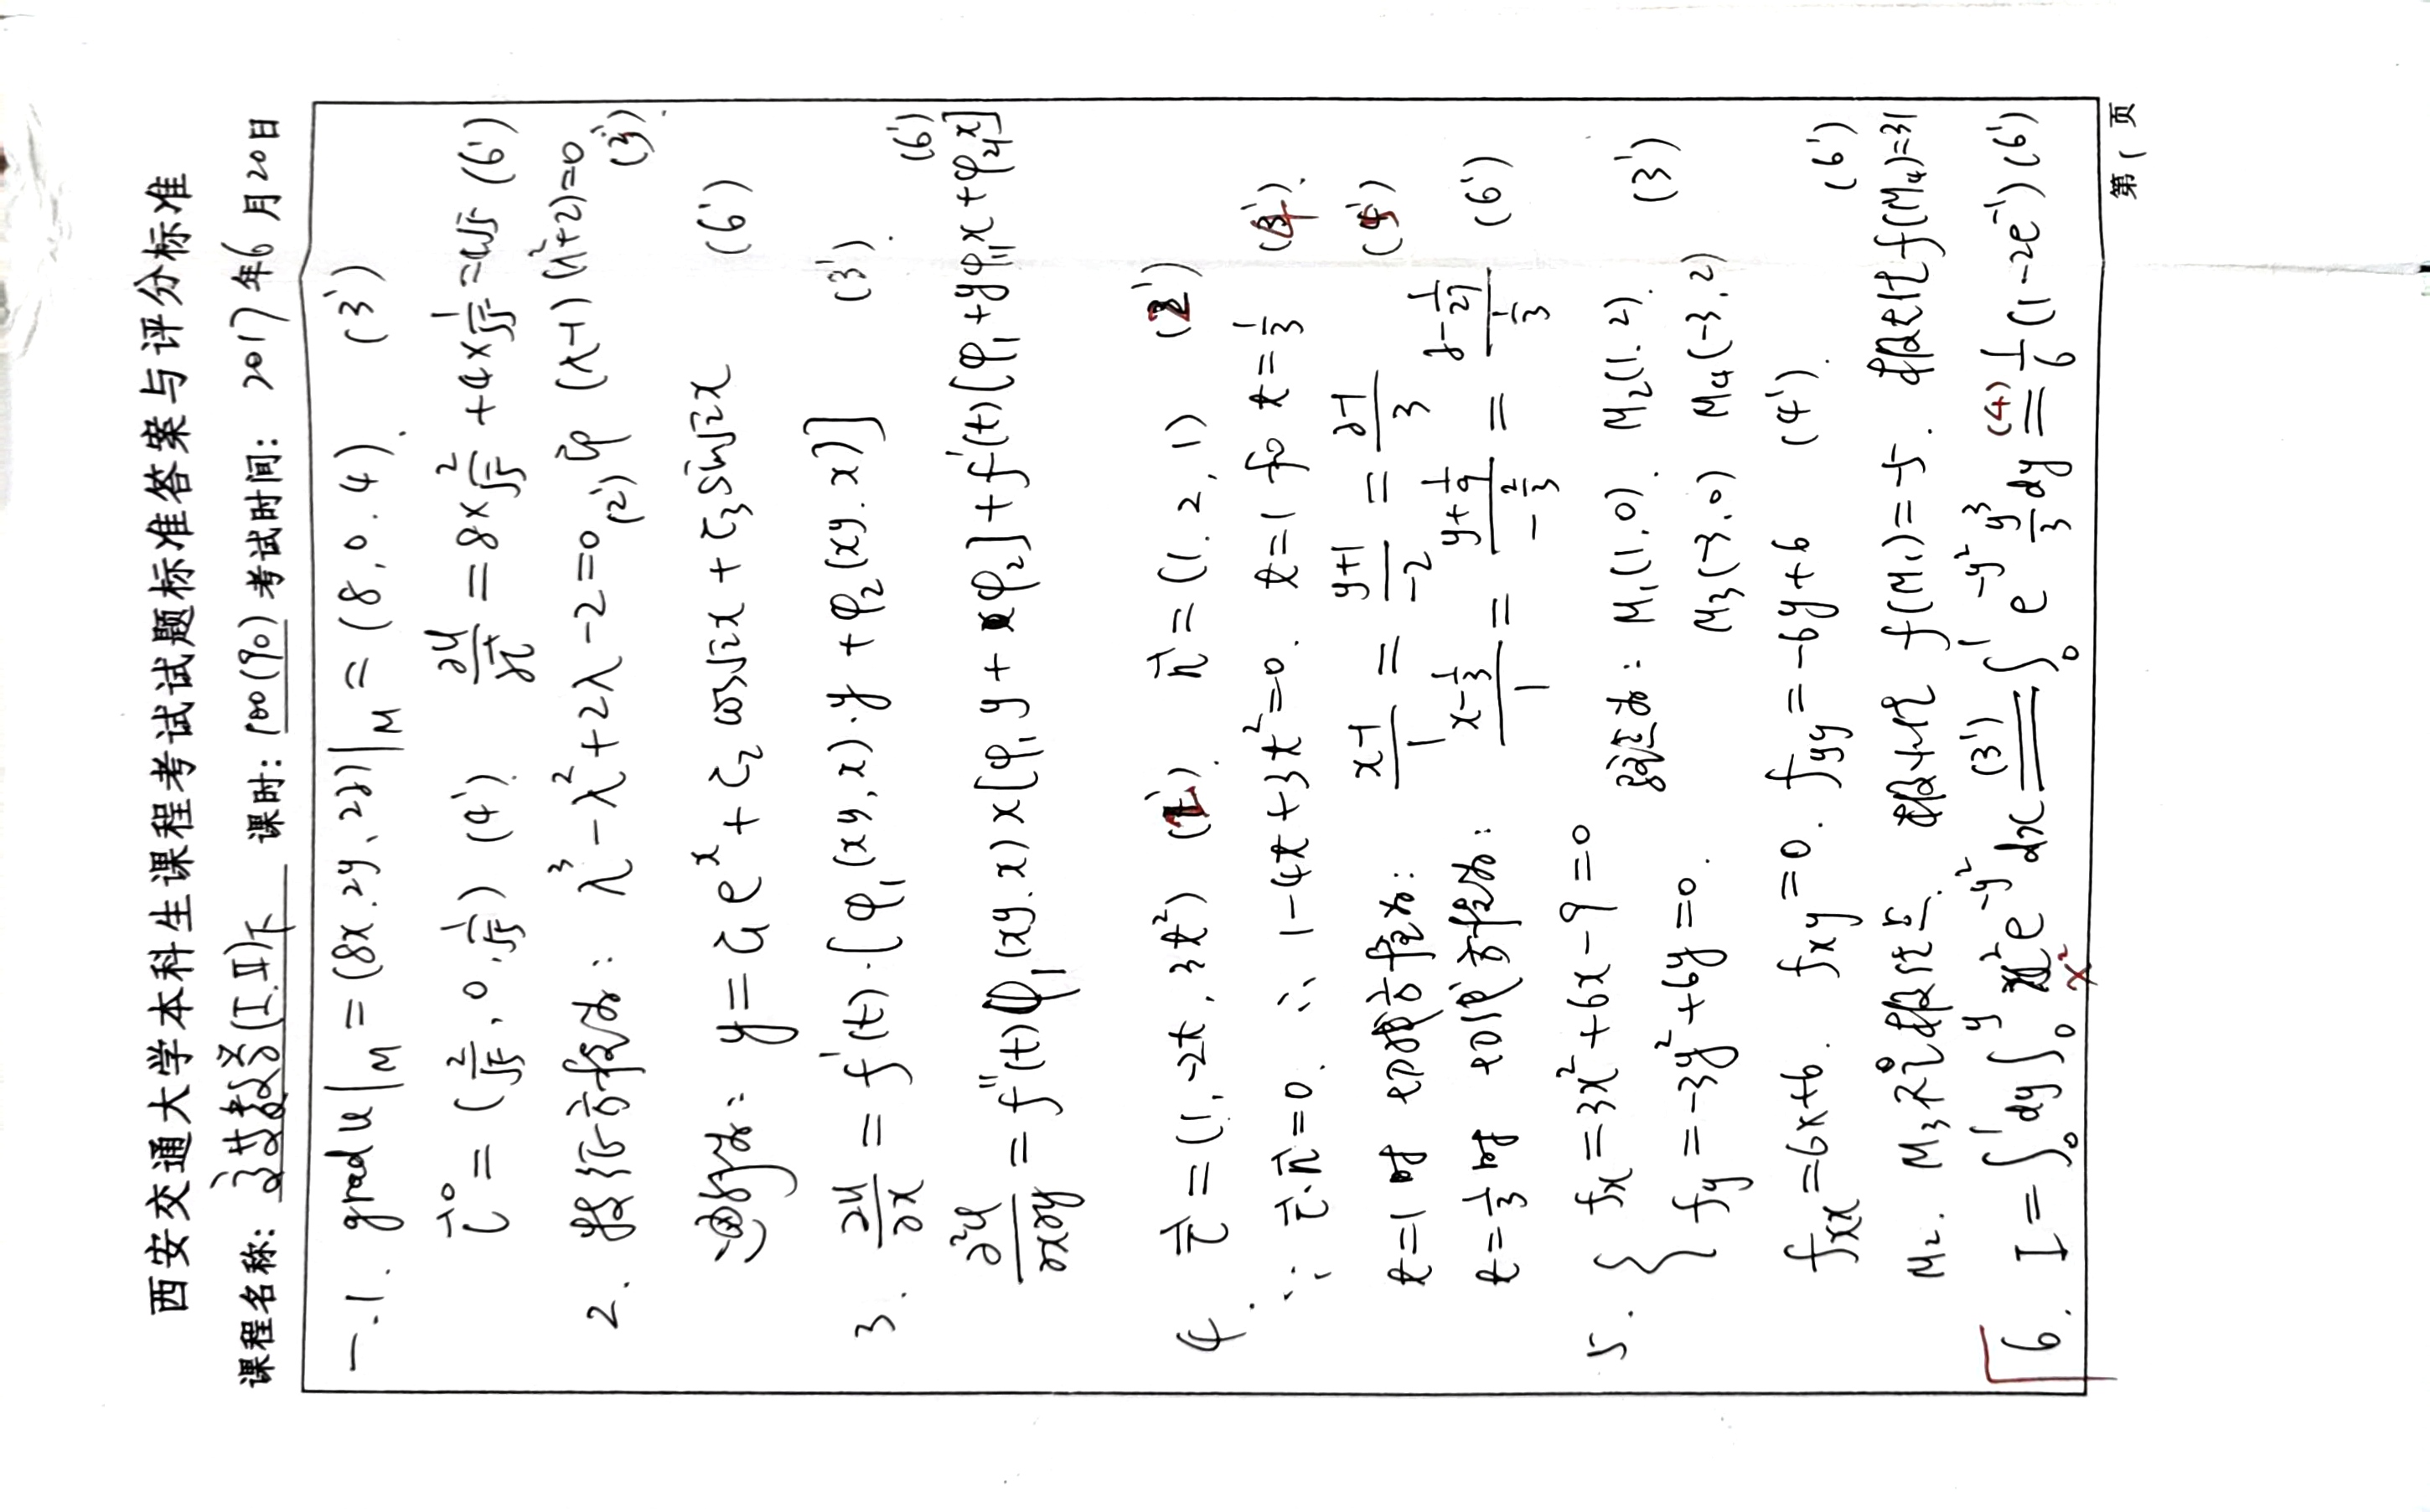 西安交通大学本科生课程考试试题标准答案与评分标准
课程名称: 高等数学(I.II)下 课时: 100(90) 考试时间: 2017年6月20日
一.1. grad u|_M = (8x.2y、2z)|_M = (8,0.4). (3')
l⃗° = (2/√5, 0, 1/√5) (4'). ∂u/∂l⃗ = 8×2/√5 +4×1/√5 = 4√5 (6')
2. 特征方程为: λ³-λ²+2λ-2=0 (2') 即 (λ-1)(λ²+2)=0 (3').
通解为: y = c₁e^x + c₂ cos√2x + c₃ sin√2x (6')
3. ∂u/∂x = f'(t).[φ₁(xy,x).y + φ₂(xy.x)] (3').
∂²u/∂x∂y = f''(t)φ₁(xy.x)x[φ₁y + φ₂] + f'(t)[φ₁+yφ₁₁x+φ₂₁x] (6')
4. τ⃗ = (1,-2t,3t²) (1'). n⃗ = (1.2,1) (2')
∵ τ⃗.n⃗=0. ∴ 1-4t+3t²=0. t=1 和 t=1/3 (4').
t=1 时 切线方程为: (x-1)/1 = (y+1)/-2 = (z-1)/3 (5')
t=1/3 时 切线方程为: (x-1/3)/1 = (y+1/9)/(-2/3) = (z-1/27)/(1/3) (6')
5. { fx =3x²+6x-9=0 驻点为: M₁(1,0). M₂(1.2). (3')
fy =-3y²+6y=0. M₃(-3,0) M₄(-3,2)
fxx=6x+6. fxy=0. fyy=-6y+6 (4'). (6')
M₂. M₃不是极值点. 极小值 f(M₁)=-5. 极大值 f(M₄)=31
6. I = ∫₀¹dy∫₀^y x²e^(-y²)dx (3')= ∫₀¹ e^(-y²) y³/3 dy (4)= 1/6 (1-2e⁻¹) (6')
x²
第 1 页